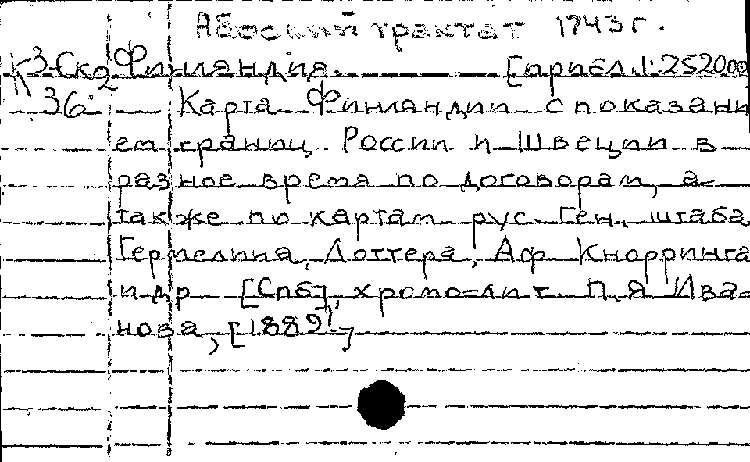 Абоский трактат 1743 г.
К 3-Ск2 Финляндия. [прибл. 1:2520000
36 Карта Финляндии с показани
ем границ России и Швеции в
разное время по договорам, а
также по картам рус. Ген. штаба,
Гермелина, Лоттера, Аф Кнорринга
и др. [Спб], хромо-лит. П. Я. Ива-
нова, [1889]